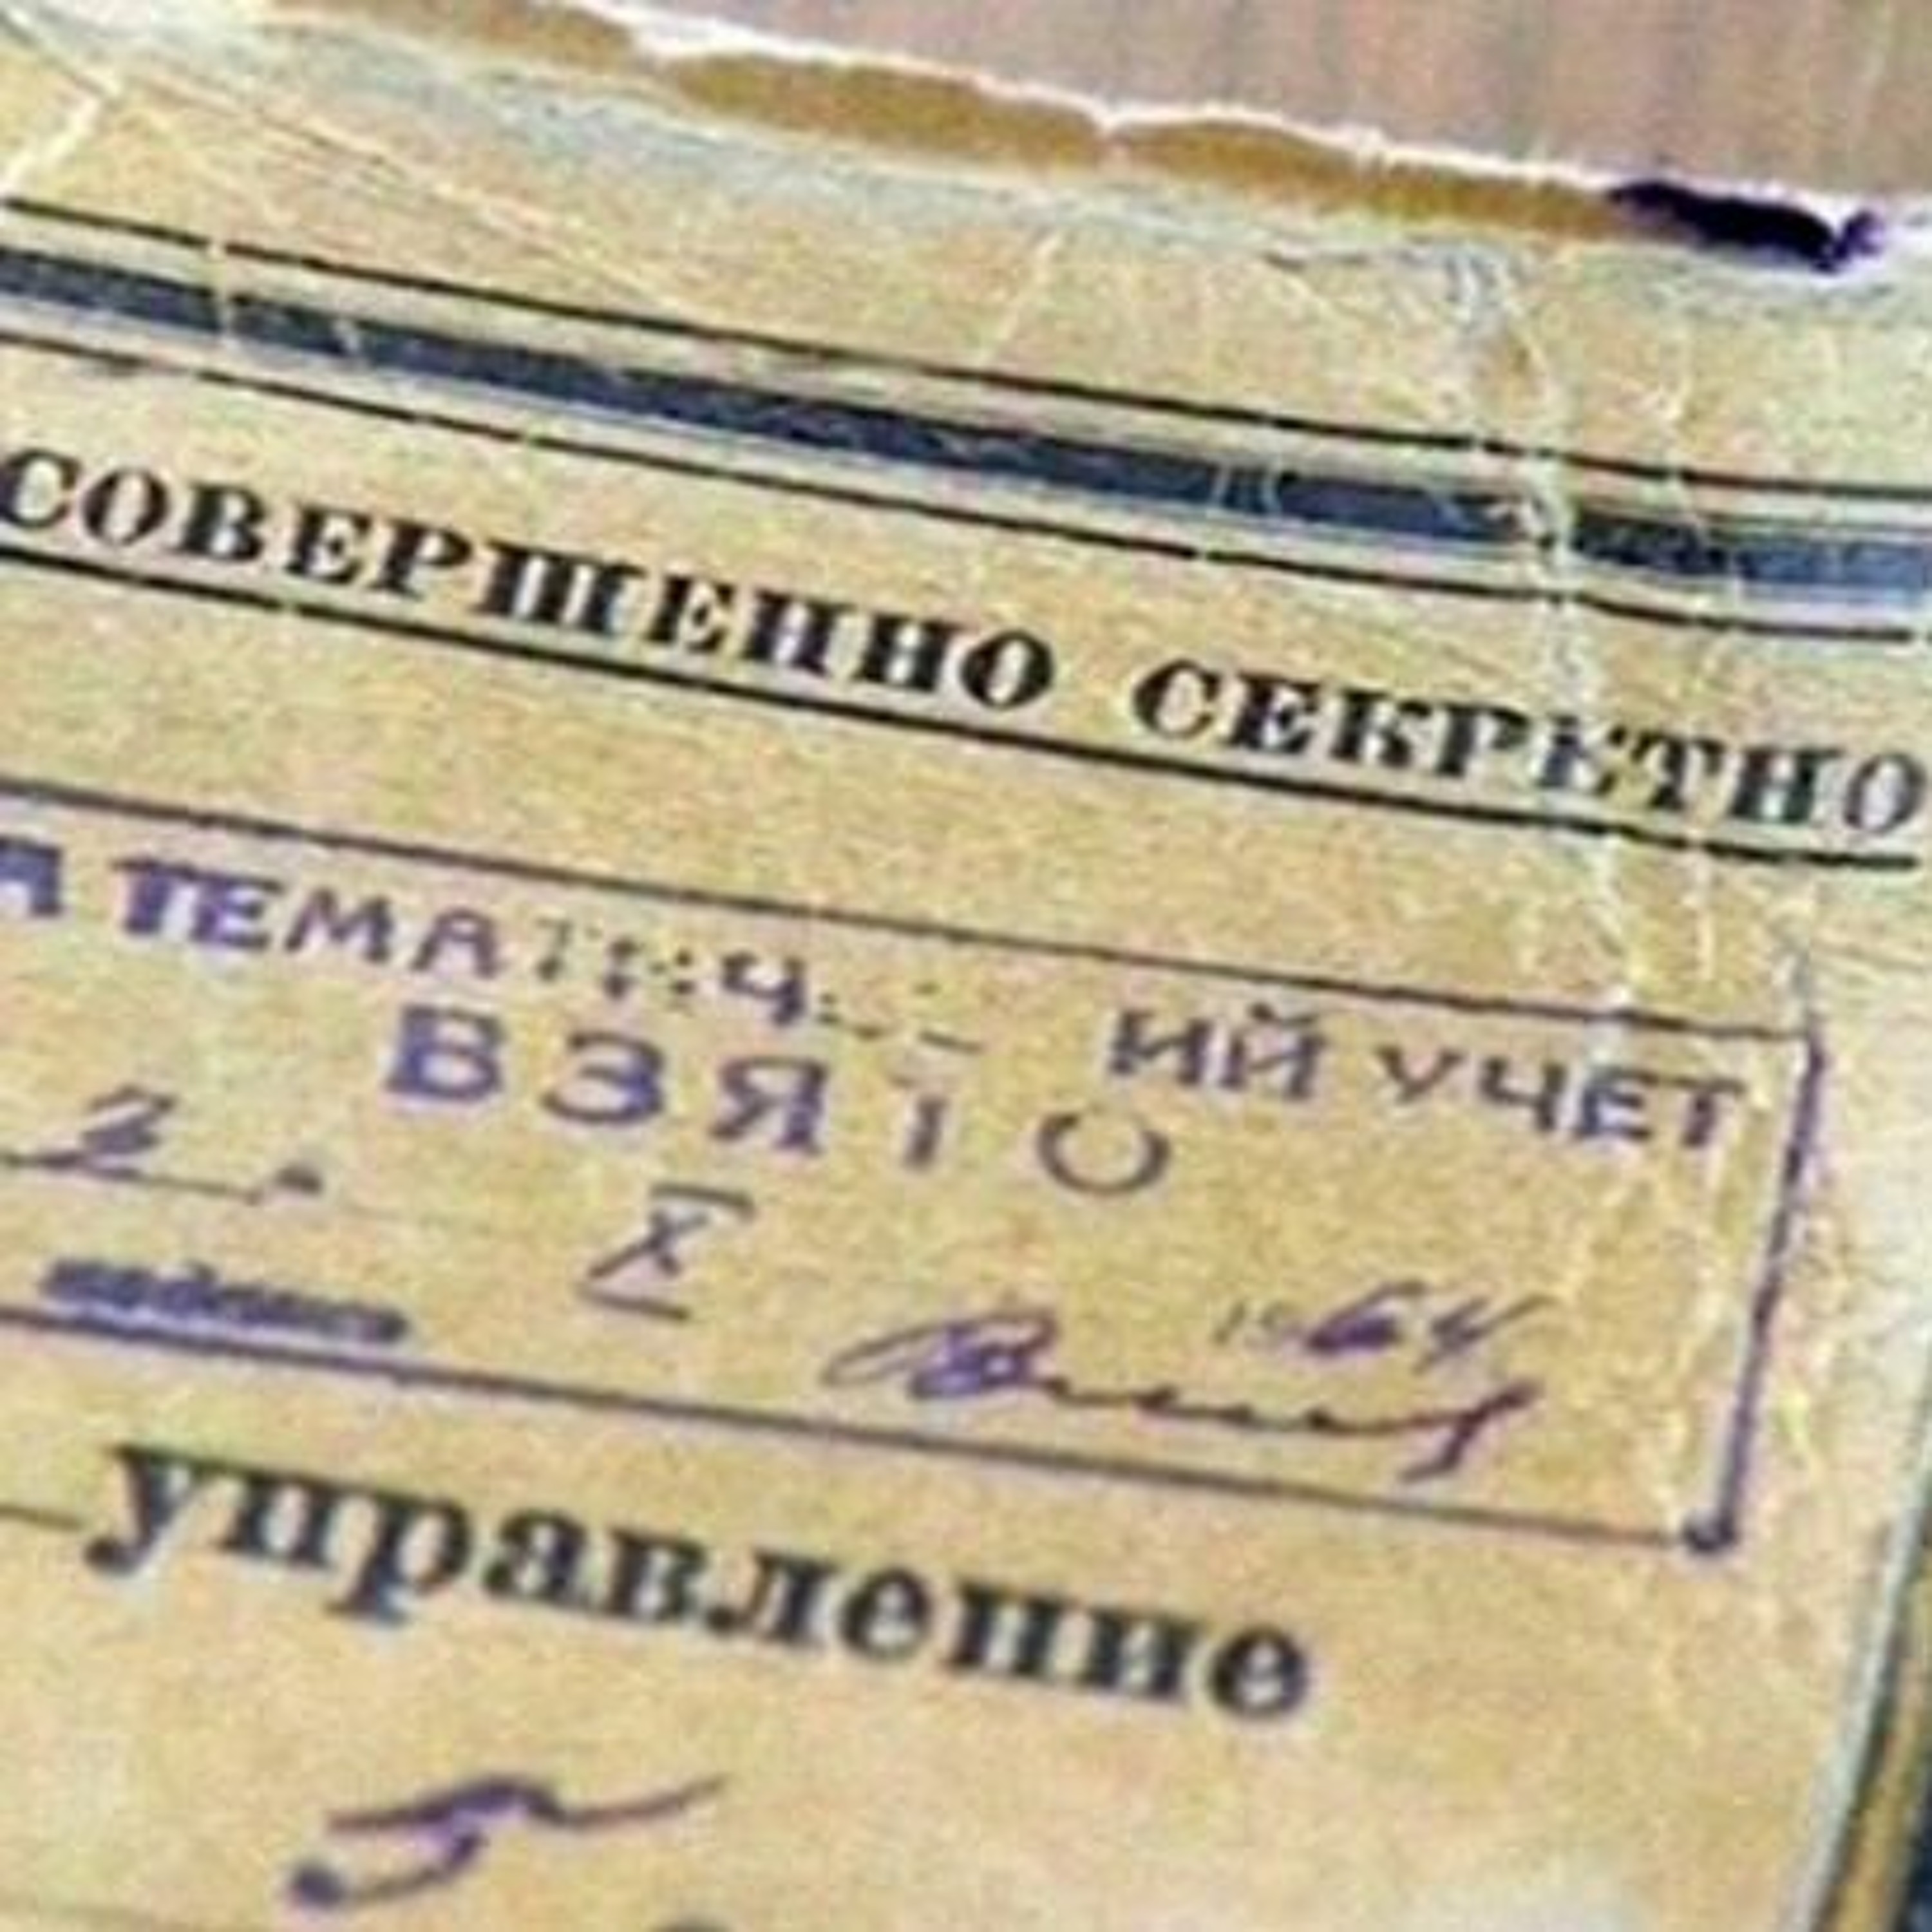 СОВЕРШЕННО СЕКРЕТНО
А ТЕМАТИЧ ИЙ УЧЕТ
ВЗЯТО
2 X 1964
управление
5